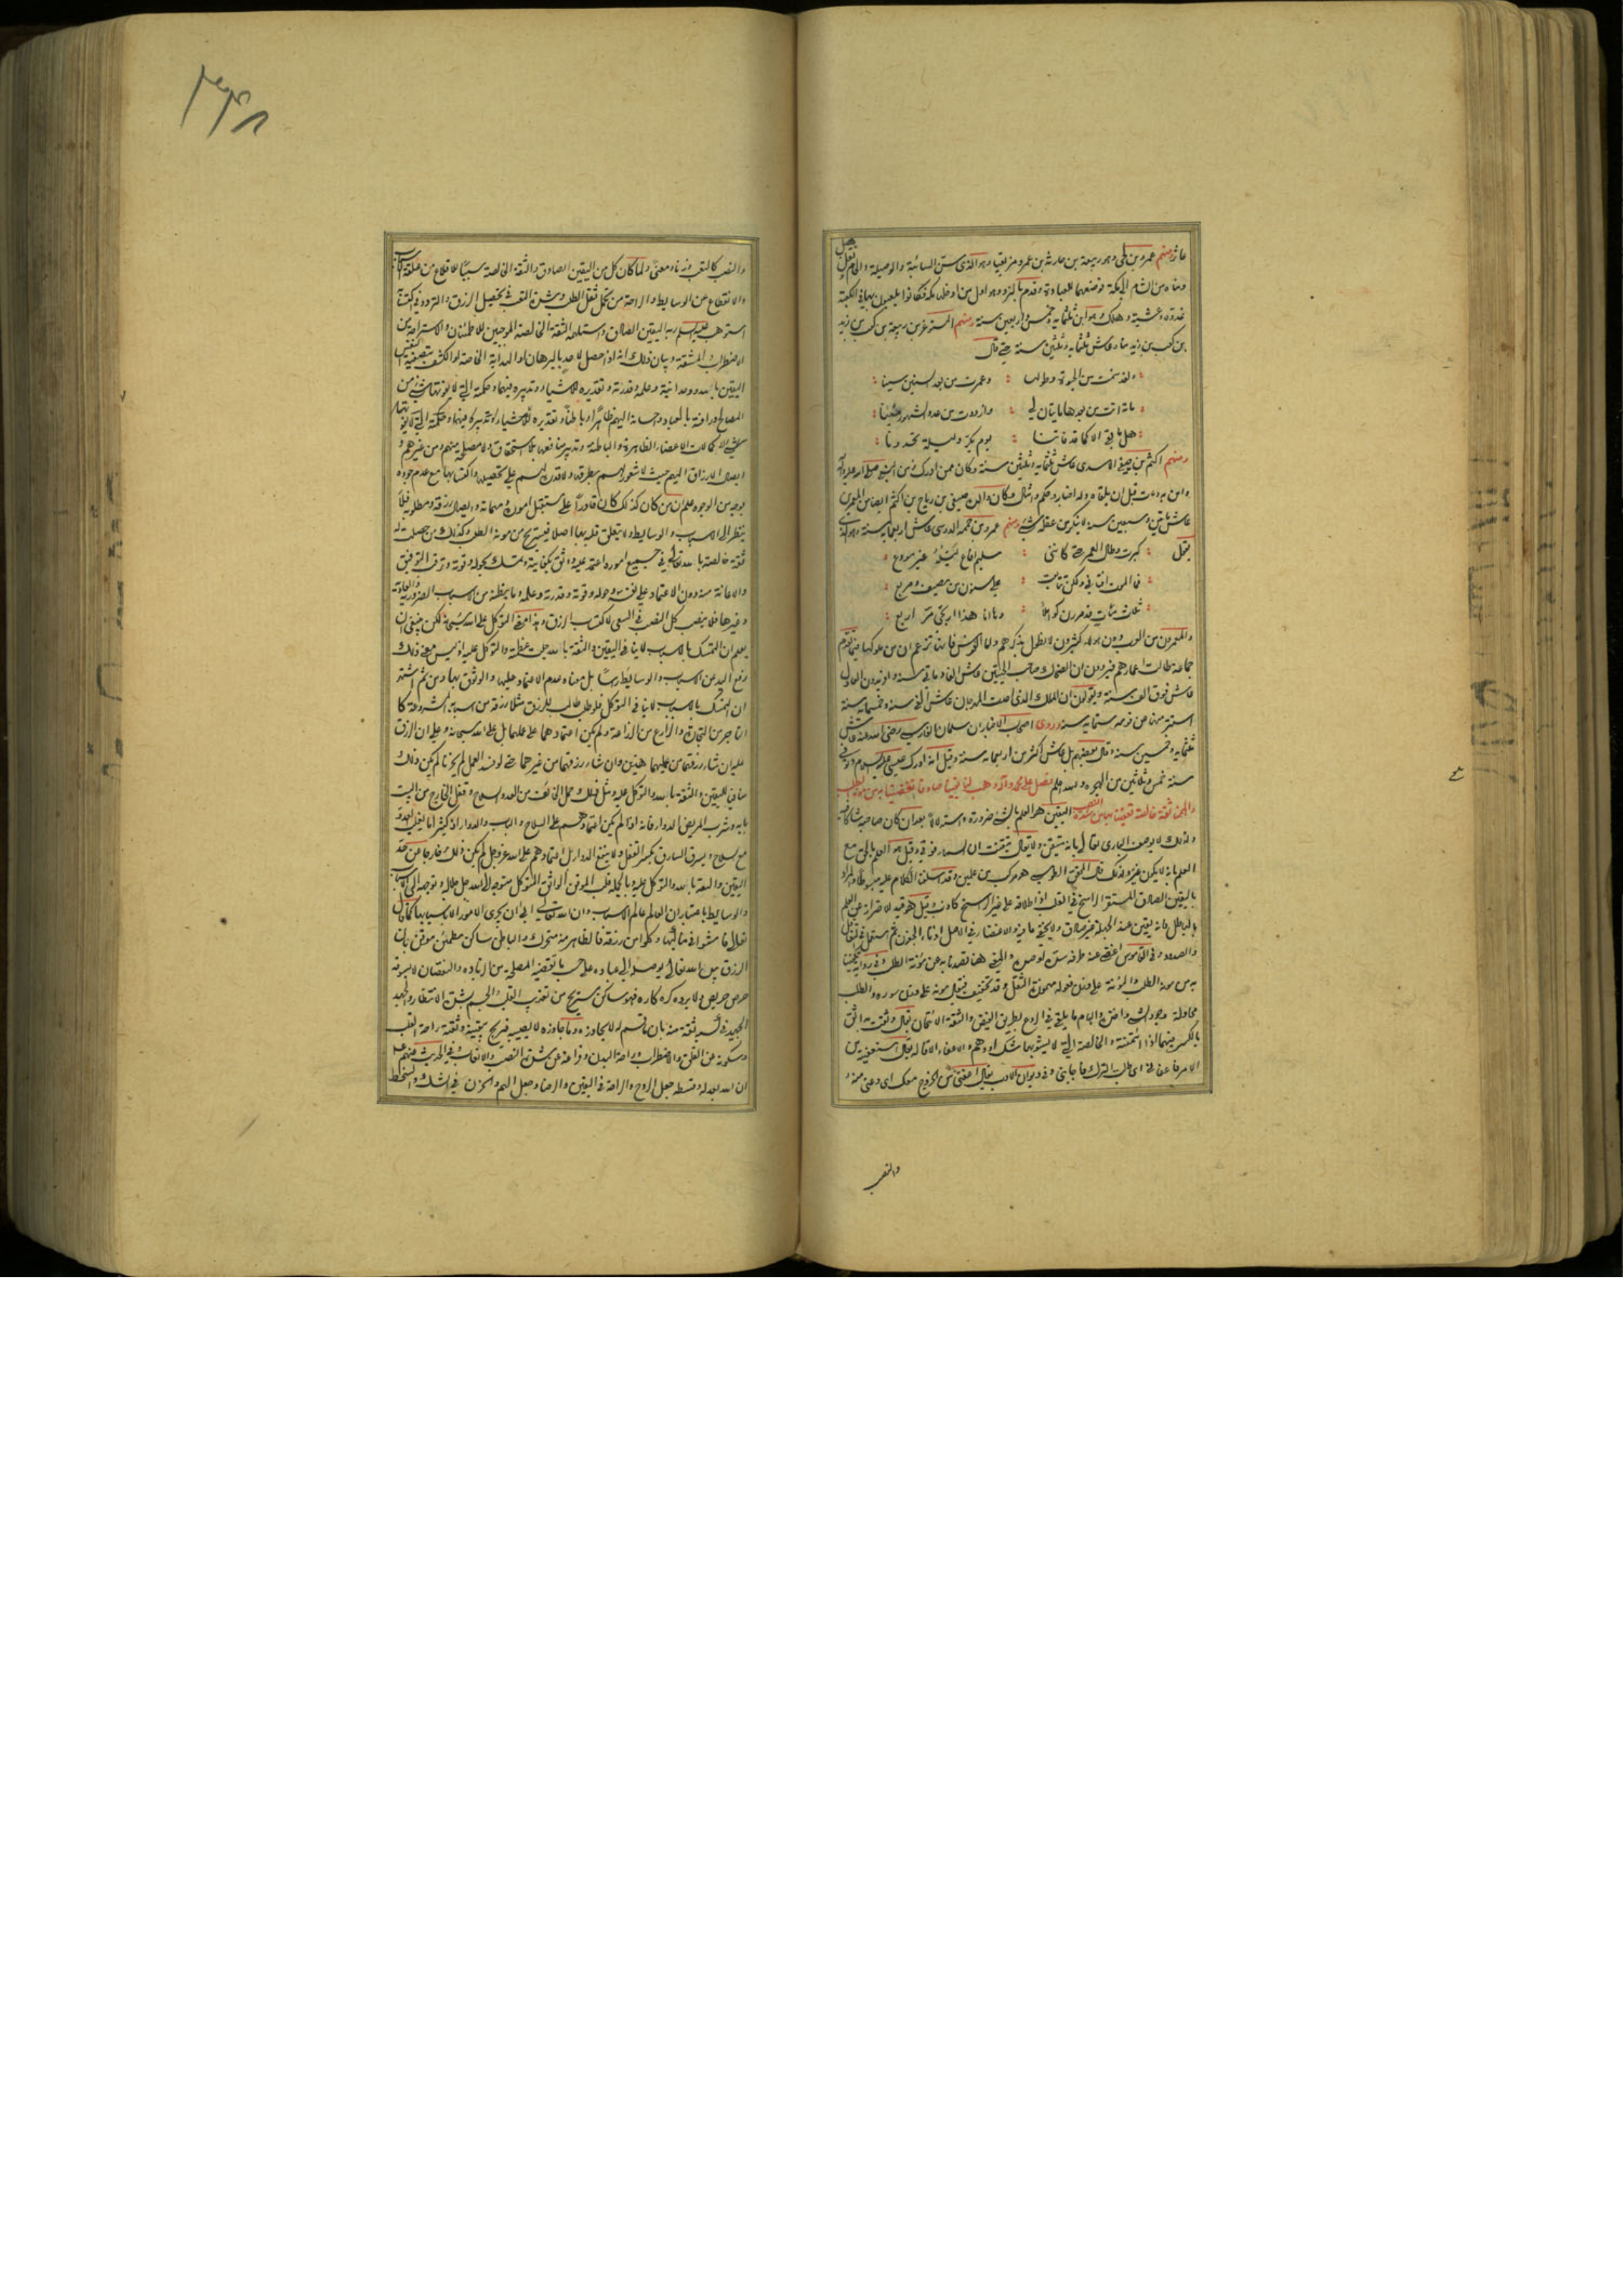 عاثر ومنهم عمرو بن لحي وهو ربيعة بن حارثة بن عمرو مزيقيا وهو الذي سن السائبة والوصيلة والحام ونقل
ومناة من الشام الى مكة فوضعهما للعبادة وقدم بالنرد وهو اول من ادخله مكة فكانوا يلعبون بها في الكعبة
غدوة وعشية وهلك وهو ابن ثلثمائة وخمس واربعين سنة ومنهم المستوغر بن ربيعة بن كعب بن زيد
بن كعب بن زيد مناة عاش ثلثمائة وثلثين سنة حتى قال
ولقد سئمت من الحيوة وطولها وعمرت من بعد السنين سينا
مائة اتت من بعدها مايتان لي وازددت من عدد الشهور مئينا
هل ما بقي الا كما قد فاتنا يوم يكر وليلة تحدونا
ومنهم اكثم بن صيفي الاسدي عاش ثلثمائة وثلثين سنة وكان ممن ادرك زمن النبي صلى الله عليه وآله
وامن به ومات قبل ان يلقاه وله اخبار وحكم وامثال وكان والده صيفي بن رياح بن اكثم ايضا من المعمرين
عاش مايتين وسبعين سنة لا ينكر من عقله شيء ومنهم عمرو بن حممة الدوسي عاش اربعمائة سنة وهو الذي
يقول كبرت وطال العمر حتى كانني سليم افاع ليله غير مودع
فما الموت افناني ولكن تتابعت علي سنون من مصيف ومربع
ثلاث مئات قد مررن كواملا وها انا هذا ارتجي مر اربع
والمعمرون من العرب وهؤلاء كثيرون لا نطول بذكرهم واما الفرس فانها تزعم ان من ملوكها فيما تقدم
جماعة طالت اعمارهم فيروون ان الضحاك صاحب الحيتين عاش الفا ومايتي سنة وافريدون العادل
عاش فوق الف سنة ويقولون ان الملك الذي احدث المهرجان عاش الفي سنة وخمسمائة سنة
استتر منها عن قومه ستمائة سنة وروى اصحاب الاخبار ان سلمان الفارسي رضي الله عنه عاش
ثلثمائة وخمسين سنة وقال بعضهم بل عاش اكثر من اربعمائة سنة وقيل انه ادرك عيسى عليه السلام وتوفي
سنة خمس وثلاثين من الهجرة والله اعلم فصل على محمد وآله وهب لنا يقينا صادقا تكفينا به من مؤنة الطلب
والهمنا ثقة خالصة تعفينا بها من شدة النصب اليقين هو العلم بالشيء ضرورة واستدلالا بعد ان كان صاحبه شاكا فيه
ولذلك لا يوصف الباري تعالى بانه متيقن ولا يقال تيقنت ان السماء فوقي وقيل هو العلم بالحق مع
العلم بانه لا يكون غيره ولذلك قال المحقق الطوسي هو مركب من علمين وقد اسلفنا الكلام عليه مبسوطا والمراد
باليقين الصادق المستقر الراسخ في القلب اذ اطلاقه على غير الراسخ كاذب وقيل هو قيد للاحتراز عن العلم
بالباطل فانه يقين عند الجهلة غير صادق ولا يخفى ما فيه
والصدود وفي القاموس
به من مؤنة الطلب المؤنة على فعولة مهموزة الثقل وقد تخفف فيقال مونة على فعلة مثل سورة والطلب
محاولة وجود الشيء واخذه والهام ما يلقى في الروع بطريق الفيض والثقة الائتمان يقال وثقت به اثق
بالكسر فيهما اذا ائتمنته والخالصة التي لا يشوبها شك او وهم والاعفاء الاقالة يقال استعفيته من
الامر فاعفاني اي طلبت الترك فاجابني وفي ديوان الادب يقال اعفني من الخروج معك اي دعني منه
والنصب
والنصب كالتعب وزنا ومعنى ولما كان كل من اليقين الصادق والثقة الخالصة سببا للاقلاع من علقة الاسباب
والانقطاع عن الوسايط والراحة من تحمل ثقل الطلب وشدة التعب في تحصيل الرزق والتردد في اكتسابه
استوهب عليه السلام ربه اليقين الصادق واستلهمه الثقة الخالصة الموجبين للاطمئنان والاستراحة من
الاضطراب والمشقة وبيان ذلك انه اذا حصل لاحد بالبرهان او الهداية الخاصة او الكشف بتصفية النفس
اليقين بالله ووحدانيته وعلمه وقدرته وتقديره للاشياء وتدبيره فيها وحكمته التي لا يفوتها شيء من
المصالح ورافته بالعباد واحسانه اليهم ظاهرا وباطنا وتقديره للاشياء وتدبيره فيها وحكمته التي لا يفوتها
الكمالات الاعضاء الظاهرة والباطنة وتدبير منافعها بلا استحقاق ولا مصلحة منهم ومن غيرهم و
ايصال الارزاق اليهم حيث لا شعور لهم بطرقه ولا قدرة لهم على تحصيله واكتسابها مع عدم
بوجه من الوجوه علم ان من كان كذلك كان قادرا على مستقبل اموره ومهماته وايصال رزقه ومطلوبه فلا
ينظر الى الاسباب والوسايط ولا يتعلق قلبه بها اصلا فيستريح من مؤنة الطلب وكذلك من حصلت له
ثقة خالصة بالله تعالى في جميع اموره اعتمد عليه ووثق بكفايته وتمسك بحوله وقوته وترقب التوفيق
والاعانة منه دون الاعتماد على نفسه وحوله وقوته وقدرته وعلمه وما يظنه من الاسباب الضرورية والعادية
وغيرها فلا ينصب كل النصب في السعي لاكتساب الرزق وهذا معنى التوكل على الله سبحانه لكن ينبغي ان
يعلم ان التمسك بالاسباب لا ينافي اليقين والثقة بالله جلت عظمته والتوكل عليه اذ ليس معنى ذلك
رفع اليد عن الاسباب والوسايط راسا بل معناه عدم الاعتماد عليها والوثوق بها ومن ثم اشتهر
ان التمسك بالاسباب لا ينافي التوكل فلو طلب طالب للرزق مثلا رزقه من اسبابه المشروعة كا
لتاجر من التجارة والزارع من الزراعة ولم يكن اعتمادهما على عملهما بل على الله سبحانه وعلى ان الرزق
عليه ان شاء رزقهما من عملهما هذين وان شاء رزقهما من غيرهما حتى لو فسد العمل لم يحزنا لم يكن ذلك
منافيا لليقين والثقة بالله والتوكل عليه ومثل ذلك حمل الخائف من العدو السلاح وقفل الخارج من البيت
بابه وشرب المريض الدواء فانه اذا لم يكن اعتمادهم على السلاح والباب والدواء اذ كثيرا ما يغلب العدو
مع السلاح ويسرق السارق بكسر القفل ولا ينفع الدواء بل اعتمادهم على الله عز وجل لم يكن ذلك خارجا عن حد
اليقين والثقة بالله والتوكل عليه وبالجملة قلب الموقن الواثق المتوكل متوجه الى الله جل جلاله وتوجهه الى الاسباب
والوسايط باعتبار ان العالم عالم الاسباب وان الله تعالى ابى ان يجري الامور الا باسبابها كما قال
تعالى فامشوا في مناكبها وكلوا من رزقه فالظاهر منه متحرك والباطن ساكن مطمئن موقن بان
الرزق من الله تعالى يوصله الى عباده على حسب ما تقتضيه المصلحة من الزيادة والنقصان لا يسوقه
حرص حريص ولا يرده كره كاره فهو ساكن مستريح من تعذيب القلب والجسم بشدة الانتظار والجهد
الجهيد في
وسكونه عن القلق والاضطراب وراحة البدن وفراغه عن شدة النصب والاتعاب وفي الحديث عنهم ع
ان الله بعدله وقسطه جعل الروح والراحة في اليقين والرضا وجعل الهم والحزن في الشك والسخط